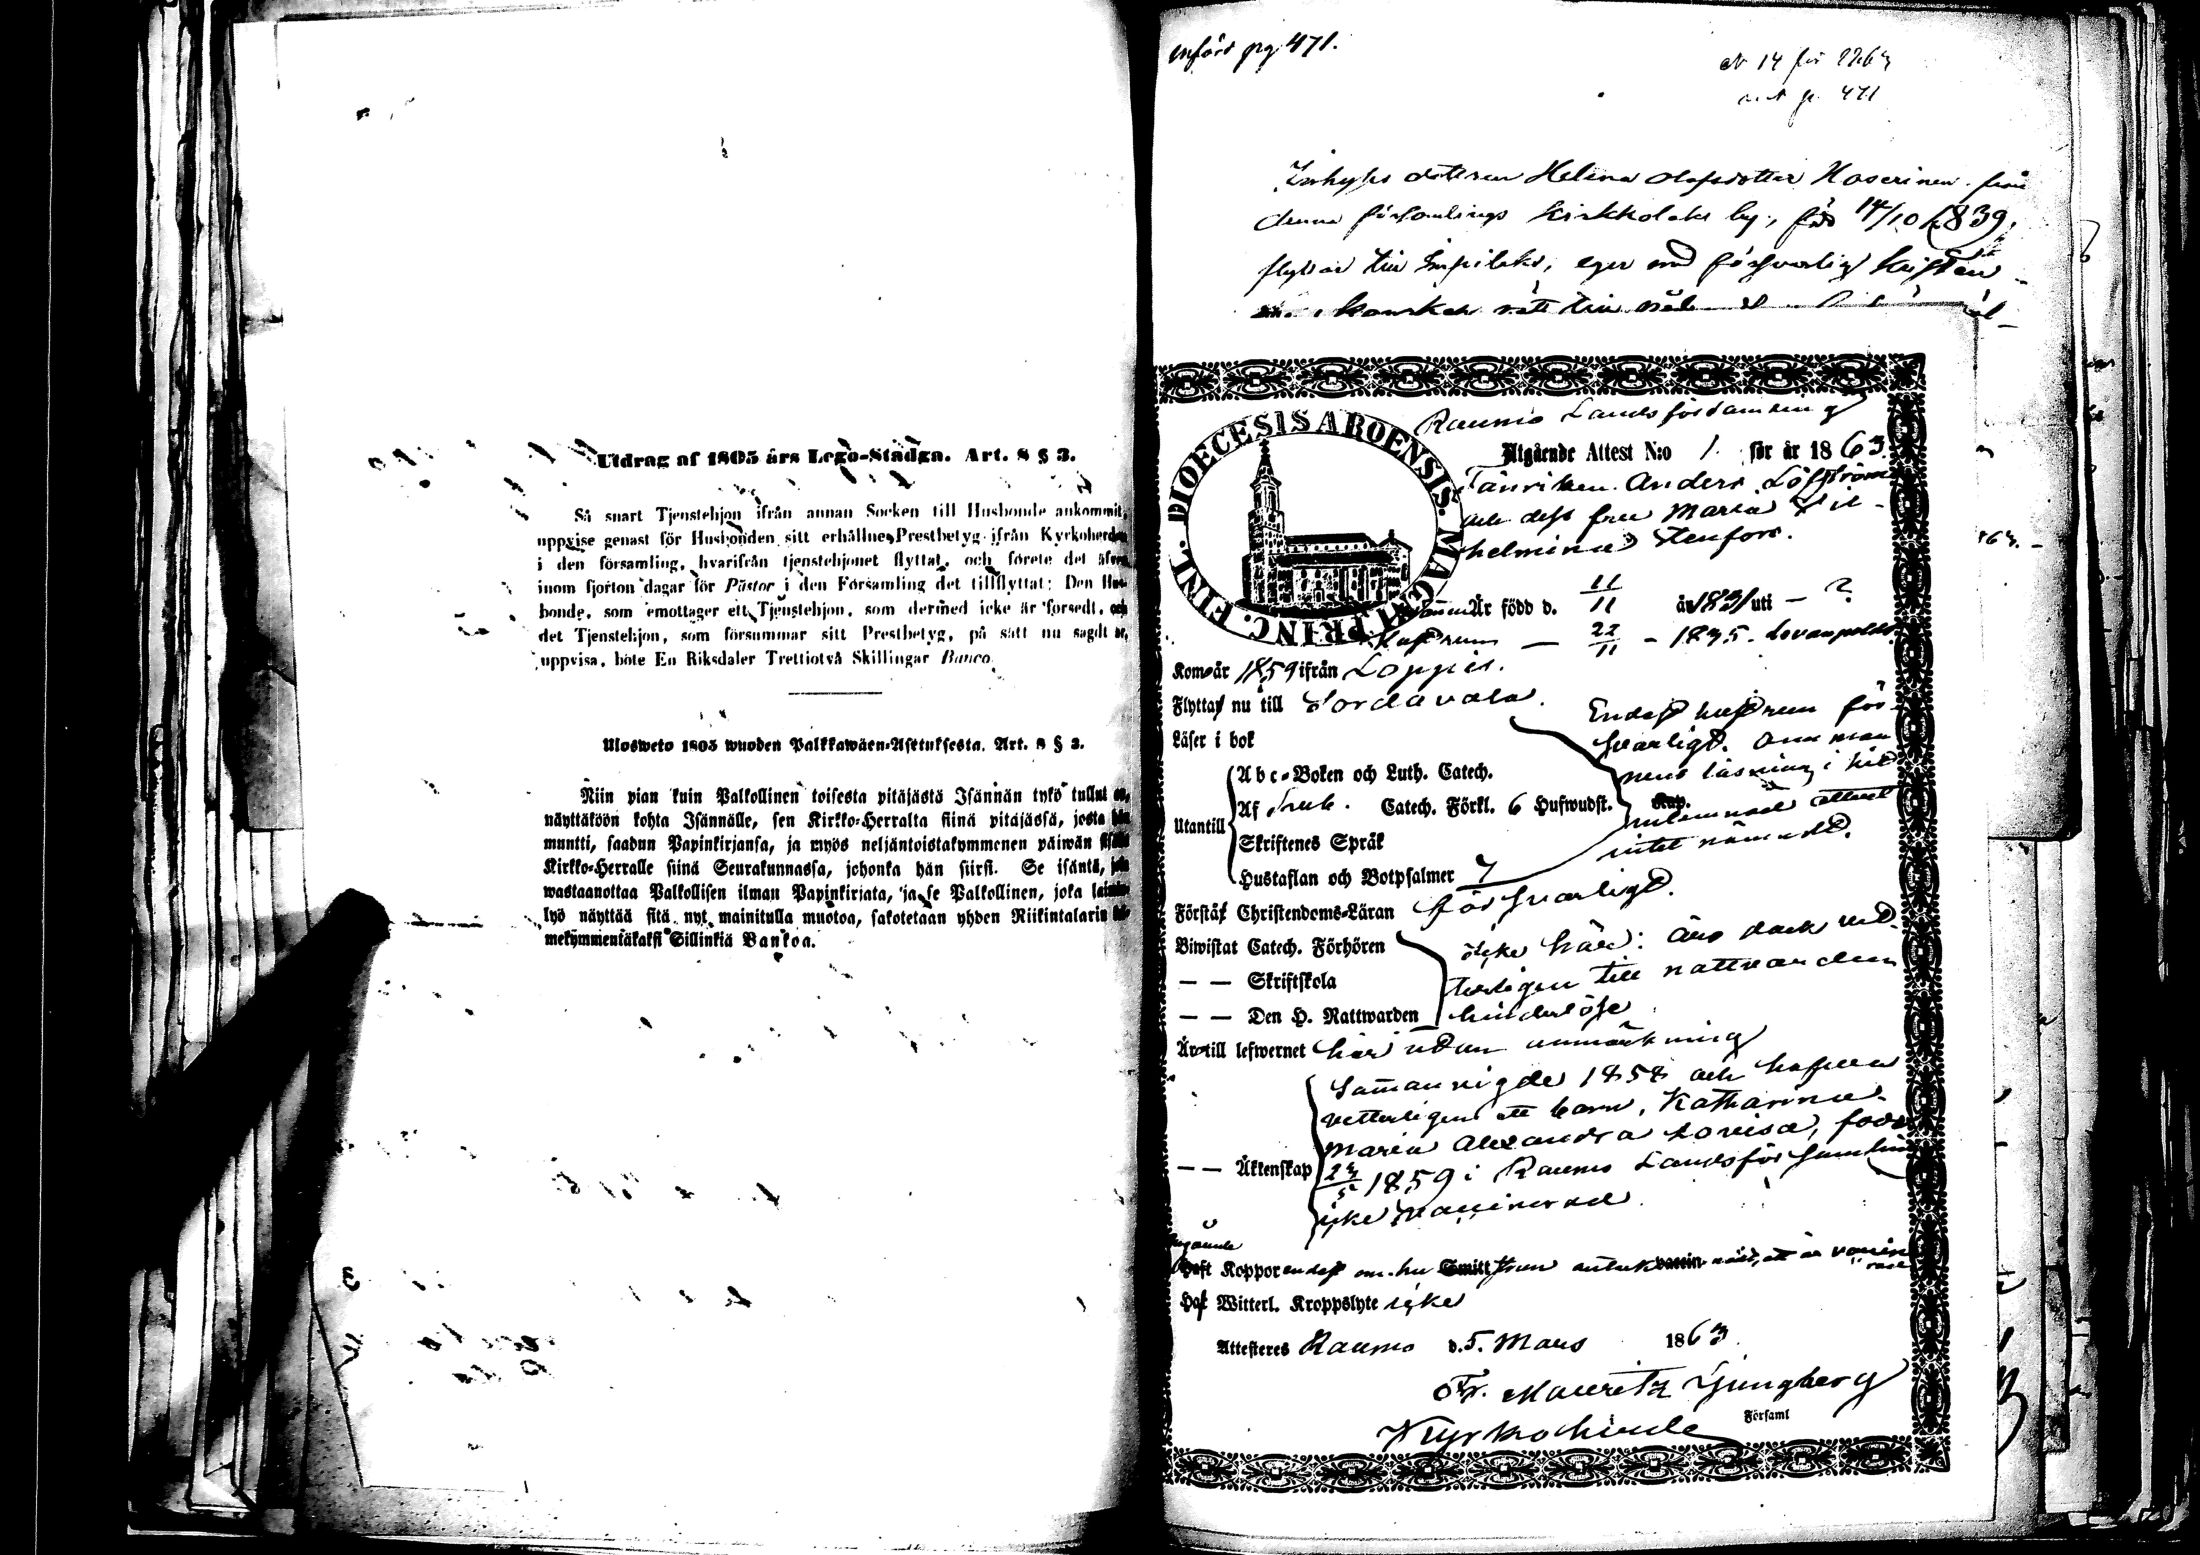 Utdrag af 1805 års Lego-Stadga. Art. 8 § 3.
Så snart Tjenstehjon ifrån annan Socken till Husbonde ankommit,
uppvise genast för Husbonden sitt erhållne Prestbetyg ifrån Kyrkoherden
i den församling, hvarifrån tjenstehjonet flyttat, och förete det äfven
inom fjorton dagar för Pastor i den Församling det tillflyttat: Den Hus-
bonde, som emottager ett Tjenstehjon, som dermed icke är forsedt, och
det Tjenstehjon, som försummar sitt Prestbetyg, på sätt nu sagdt är,
uppvisa, böte En Riksdaler Trettiotvå Skillingar Banco.
Ulosweto 1805 wuoden Palkkawäen-Asetuksesta. Art. 8 § 3.
Niin pian kuin Palkollinen toisesta pitäjästä Isännän tykö tullut on,
näyttäköön kohta Isännälle, sen Kirkko-Herralta siinä pitäjässä, josta hän
muutti, saadun Papinkirjansa, ja myös neljäntoistakymmenen päiwän sisällä
Kirkko-Herralle siinä Seurakunnassa, johonka hän siirsi. Se isäntä, joka
wastaanottaa Palkollisen ilman Papinkirjata, ja se Palkollinen, joka laimin-
lyö näyttää sitä nyt mainitulla muotoa, sakotetaan yhden Riikintalarin kol-
mekymmentäkaksi Sillinkiä Bankoa.
införd pg 471.
N 14 för 1863
pg. 471
dottren Helena Olofsdotter Hoserinen från
denna församlings Kirkkolaks by, född 14/10 1839,
flyttar till Impilaks, eger med försvarlig kristen
kunskap rätt till
Raumo Landsförsamling
DIOECESIS ABOENSIS. MAGNI PRINC. FINL.
Utgående Attest N:o 1. för år 1863.
Fänriken Anders Löfström
och dess fru Maria Vil-
helmina Stenfors.
mannen Är född d. 11/11 år 1831 uti - ?
Hustrun - 22/11 - 1835.
Kom år 1859 ifrån Loppis.
Flyttar nu till Sordavala.
Läser i bok
Endast hustrun för-
svarligt. Om man-
nens läsning i hit
medlemnad attest
intet nämndt.
A b c-Boken och Luth. Catech.
Utantill
Af Catech. Förkl. 6 Hufwudst. Kap.
Skriftenes Språk
Hustaflan och Botpsalmer 7
Förstår Christendoms-Läran försvarligt.
Biwistat Catech. Förhören
— — Skriftskola
— — Den H. Nattwarden
icke här: äro dock vet-
terligen till nattvarden
hinderlöse
Är till lefwernet här utan anmärkning
— — Äktenskap
Sammanvigde 1858 och hafwa
vetterligen ett barn, Katharina
Maria Alexandra Lovisa, född
1859 i Raumo Landsförsamling
icke vaccinerad.
Haft Koppor endast om
Haf Witterl. Kroppslyte icke
Attesteres Raumo d. 5. Mars 1863
Fr. Mauritz Ljungberg
Kyrkoherde
Församl